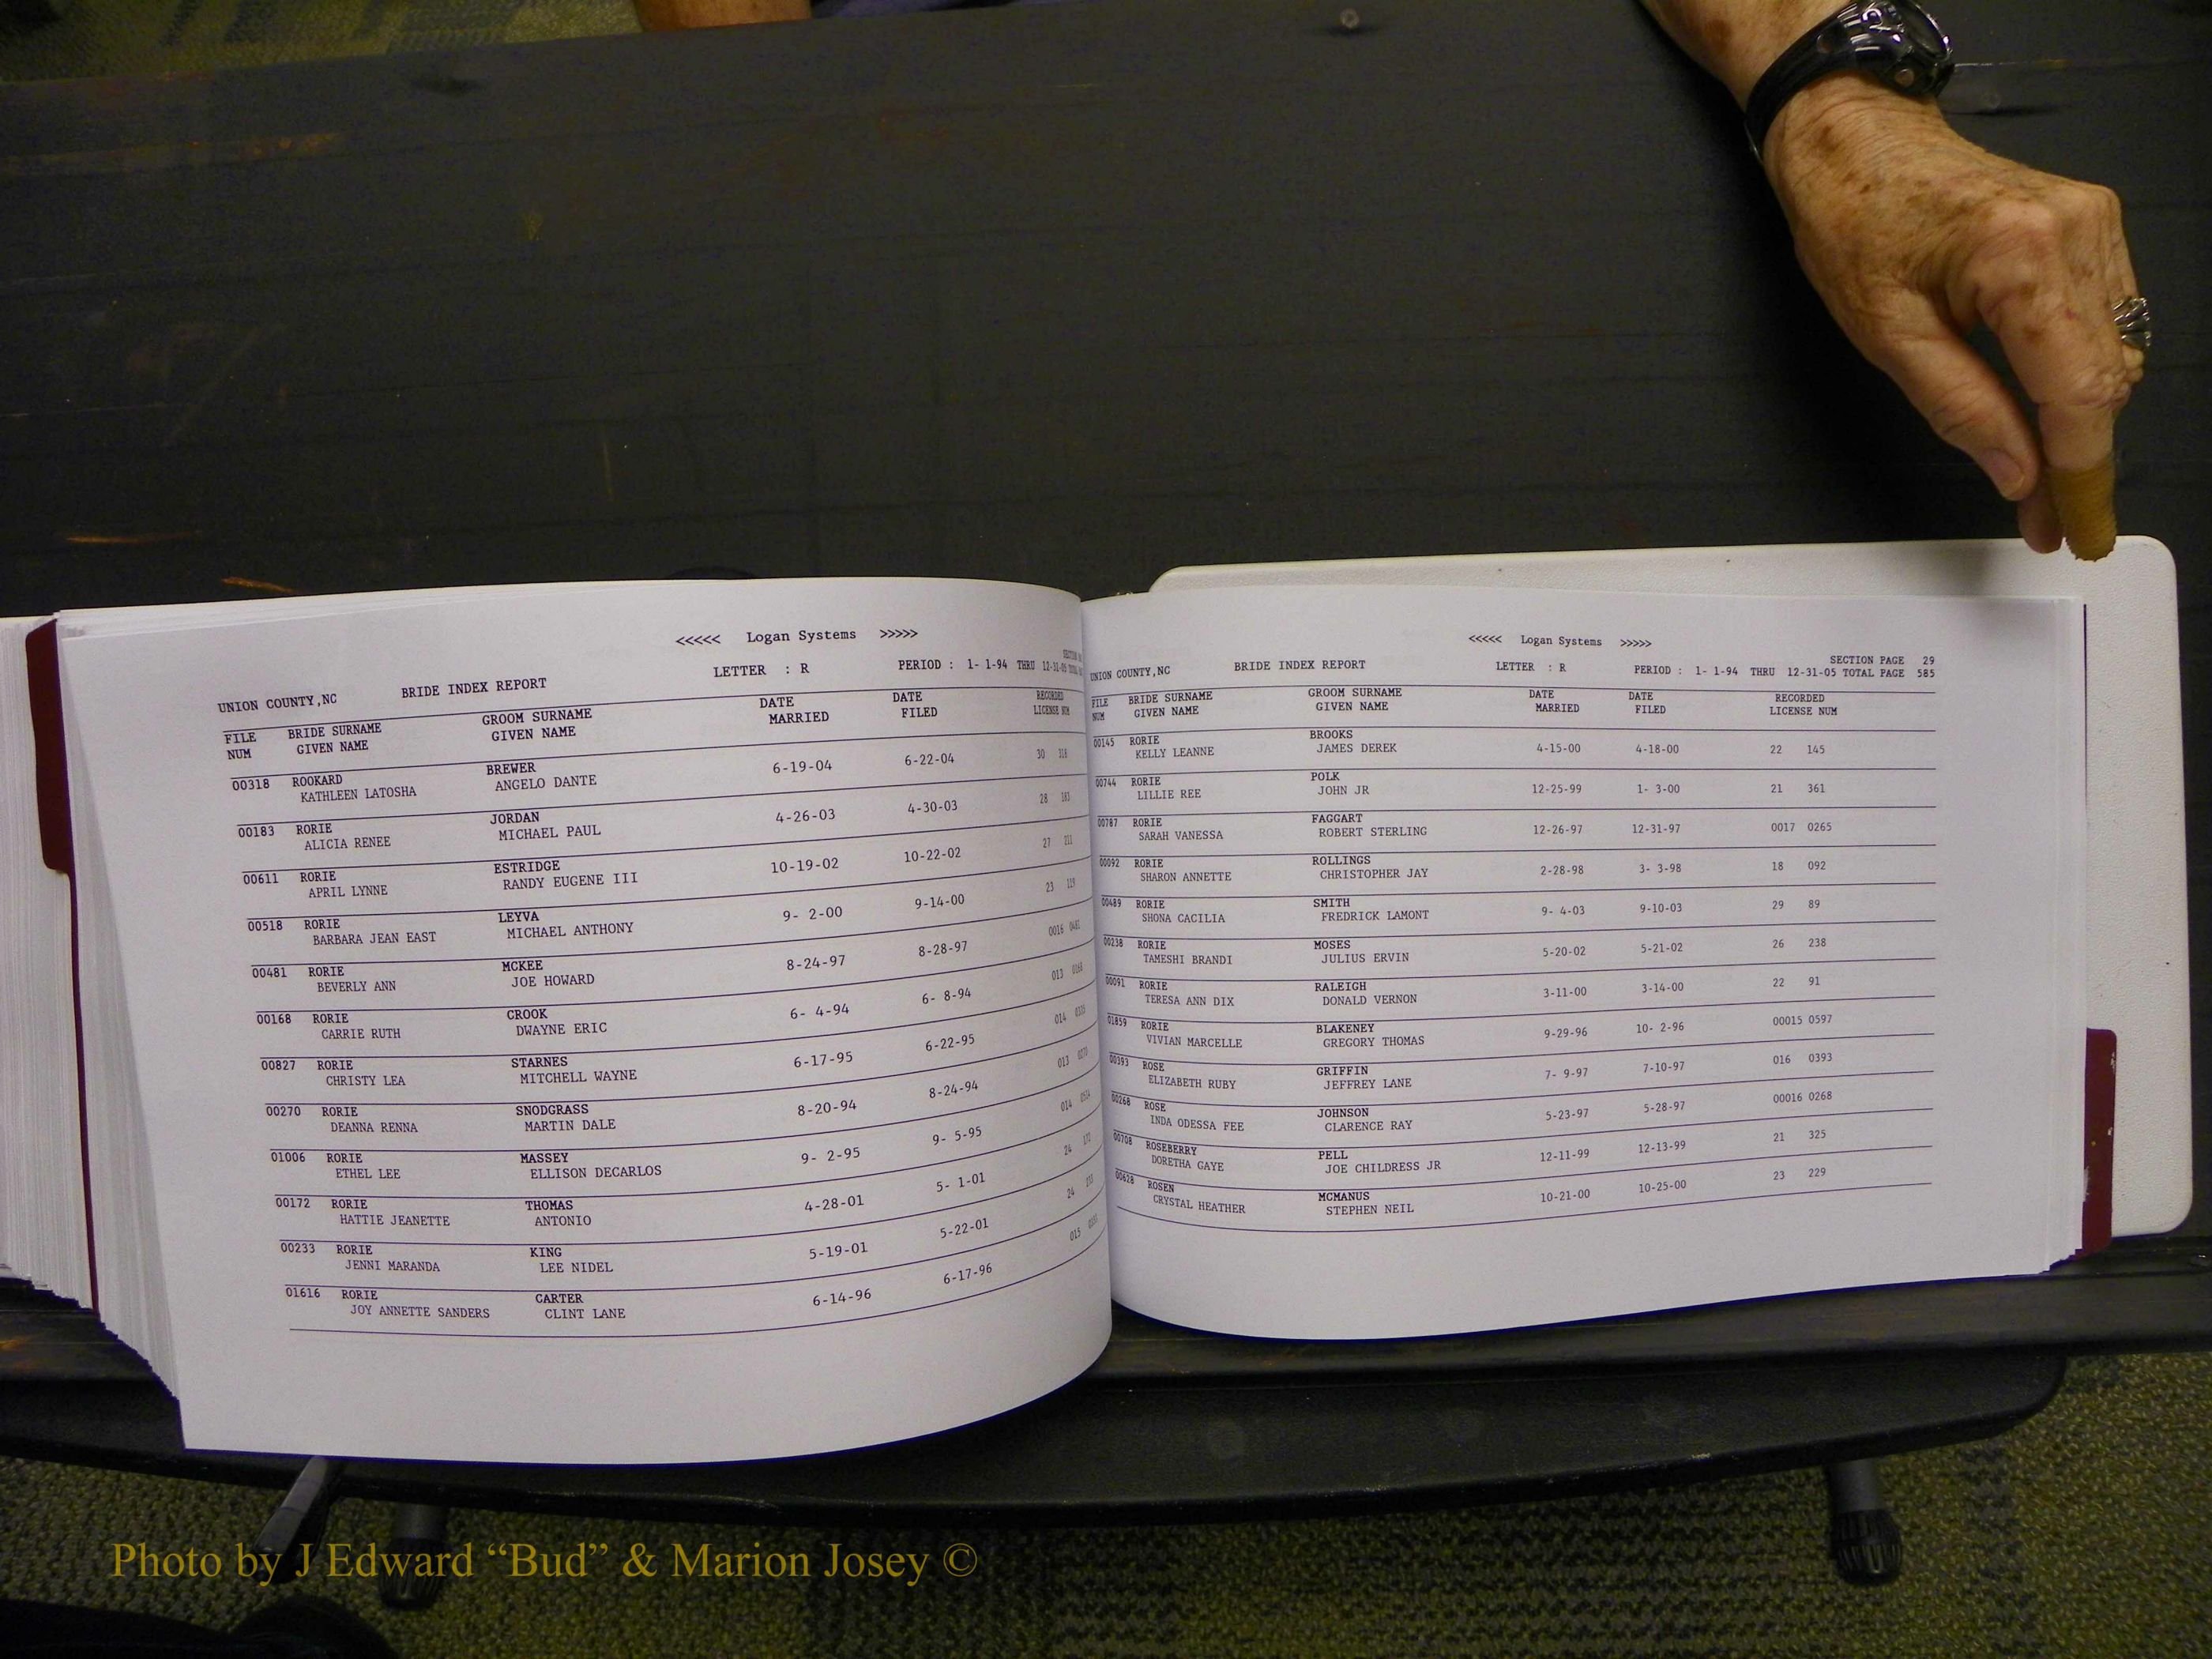 <<<<< Logan Systems >>>>>
UNION COUNTY,NC BRIDE INDEX REPORT LETTER : R PERIOD : 1- 1-94 THRU 12-31-05
FILE BRIDE SURNAME GROOM SURNAME DATE DATE RECORDED
NUM GIVEN NAME GIVEN NAME MARRIED FILED LICENSE NUM
00318 ROOKARD BREWER 6-19-04 6-22-04 30 318
KATHLEEN LATOSHA ANGELO DANTE
00183 RORIE JORDAN 4-26-03 4-30-03 28 183
ALICIA RENEE MICHAEL PAUL
00611 RORIE ESTRIDGE 10-19-02 10-22-02 27 211
APRIL LYNNE RANDY EUGENE III
00518 RORIE LEYVA 9- 2-00 9-14-00 23 119
BARBARA JEAN EAST MICHAEL ANTHONY
00481 RORIE MCKEE 8-24-97 8-28-97 0016 0481
BEVERLY ANN JOE HOWARD
00168 RORIE CROOK 6- 4-94 6- 8-94 013 0168
CARRIE RUTH DWAYNE ERIC
00827 RORIE STARNES 6-17-95 6-22-95 014
CHRISTY LEA MITCHELL WAYNE
00270 RORIE SNODGRASS 8-20-94 8-24-94 013 0270
DEANNA RENNA MARTIN DALE
01006 RORIE MASSEY 9- 2-95 9- 5-95 014
ETHEL LEE ELLISON DECARLOS
00172 RORIE THOMAS 4-28-01 5- 1-01 24 172
HATTIE JEANETTE ANTONIO
00233 RORIE KING 5-19-01 5-22-01 24 233
JENNI MARANDA LEE NIDEL
01616 RORIE CARTER 6-14-96 6-17-96 015
JOY ANNETTE SANDERS CLINT LANE
<<<<< Logan Systems >>>>>
SECTION PAGE 29
UNION COUNTY,NC BRIDE INDEX REPORT LETTER : R PERIOD : 1- 1-94 THRU 12-31-05 TOTAL PAGE 585
FILE BRIDE SURNAME GROOM SURNAME DATE DATE RECORDED
NUM GIVEN NAME GIVEN NAME MARRIED FILED LICENSE NUM
00145 RORIE BROOKS 4-15-00 4-18-00 22 145
KELLY LEANNE JAMES DEREK
00744 RORIE POLK 12-25-99 1- 3-00 21 361
LILLIE REE JOHN JR
00787 RORIE FAGGART 12-26-97 12-31-97 0017 0265
SARAH VANESSA ROBERT STERLING
00092 RORIE ROLLINGS 2-28-98 3- 3-98 18 092
SHARON ANNETTE CHRISTOPHER JAY
00489 RORIE SMITH 9- 4-03 9-10-03 29 89
SHONA CACILIA FREDRICK LAMONT
00238 RORIE MOSES 5-20-02 5-21-02 26 238
TAMESHI BRANDI JULIUS ERVIN
00091 RORIE RALEIGH 3-11-00 3-14-00 22 91
TERESA ANN DIX DONALD VERNON
01859 RORIE BLAKENEY 9-29-96 10- 2-96 00015 0597
VIVIAN MARCELLE GREGORY THOMAS
00393 ROSE GRIFFIN 7- 9-97 7-10-97 016 0393
ELIZABETH RUBY JEFFREY LANE
00268 ROSE JOHNSON 5-23-97 5-28-97 00016 0268
INDA ODESSA FEE CLARENCE RAY
00708 ROSEBERRY PELL 12-11-99 12-13-99 21 325
DORETHA GAYE JOE CHILDRESS JR
00628 ROSEN MCMANUS 10-21-00 10-25-00 23 229
CRYSTAL HEATHER STEPHEN NEIL
Photo by J Edward “Bud” & Marion Josey ©